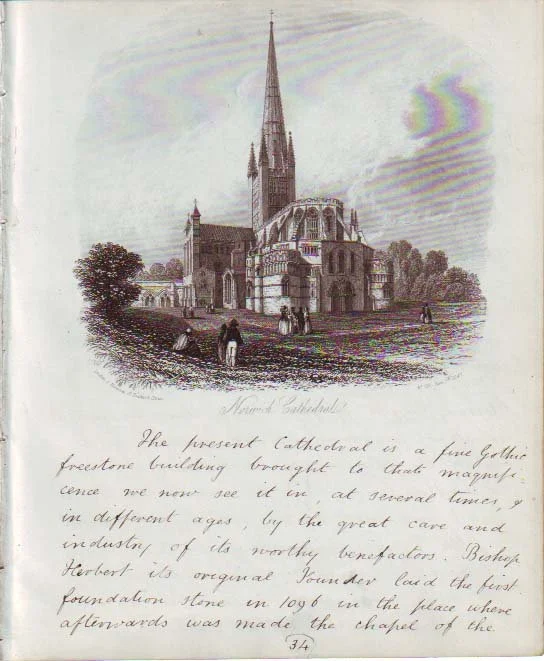 Norwich Cathedral
The present Cathedral is a fine Gothic
freestone building brought to that magnifi-
cence we now see it in, at several times, &
in different ages, by the great care and
industry of its worthy benefactors. Bishop
Herbert its original Founder laid the first
foundation stone in 1096 in the place where
afterwards was made the chapel of the
34